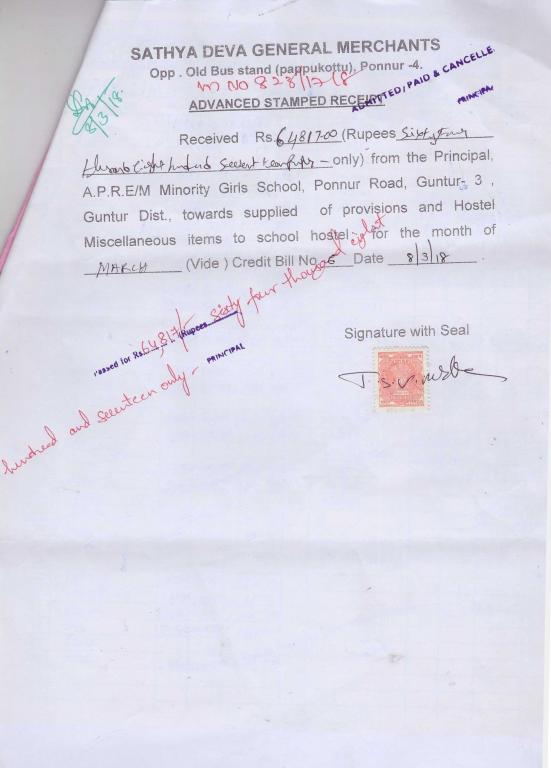 SATHYA DEVA GENERAL MERCHANTS
Opp . Old Bus stand (pappukottu), Ponnur -4.
NO 828/17-18
ADMITTED/PAID & CANCELLE
PRINCIPAL
ADVANCED STAMPED RECEIPT
8/3/18
Received Rs.64817-00 (Rupees Sixty four
thousand Eight hundred Seventeen rupees - only) from the Principal,
A.P.R.E/M Minority Girls School, Ponnur Road, Guntur- 3 ,
Guntur Dist., towards supplied of provisions and Hostel
Miscellaneous items to school hostel, for the month of
MARCH (Vide ) Credit Bill No. 6 Date 8/3/18 .
Passed for Rs. 64,817/- (Rupees Sixty four thousand eight
hundred and seventeen only -
PRINCIPAL
Signature with Seal